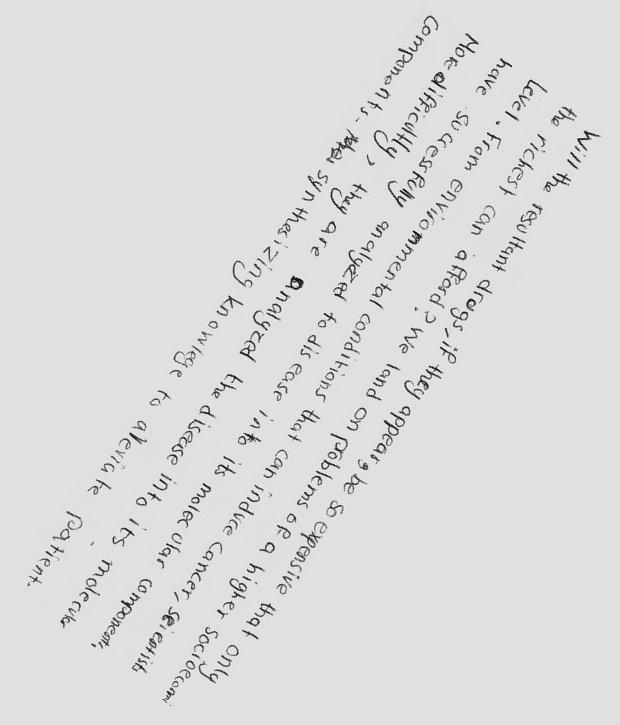 Will the resultant drugs, if they appear, be so expensive that only
the richest can afford? We land on problems of a higher socioeconomi
level. From enviromental conditions that can induce cancer, scientists
have successfully analyzed to disease into its molecular components,
More difficultly, they are analyzed the disease into its molecular
components - synthesizing knowlege to aleviate patient.